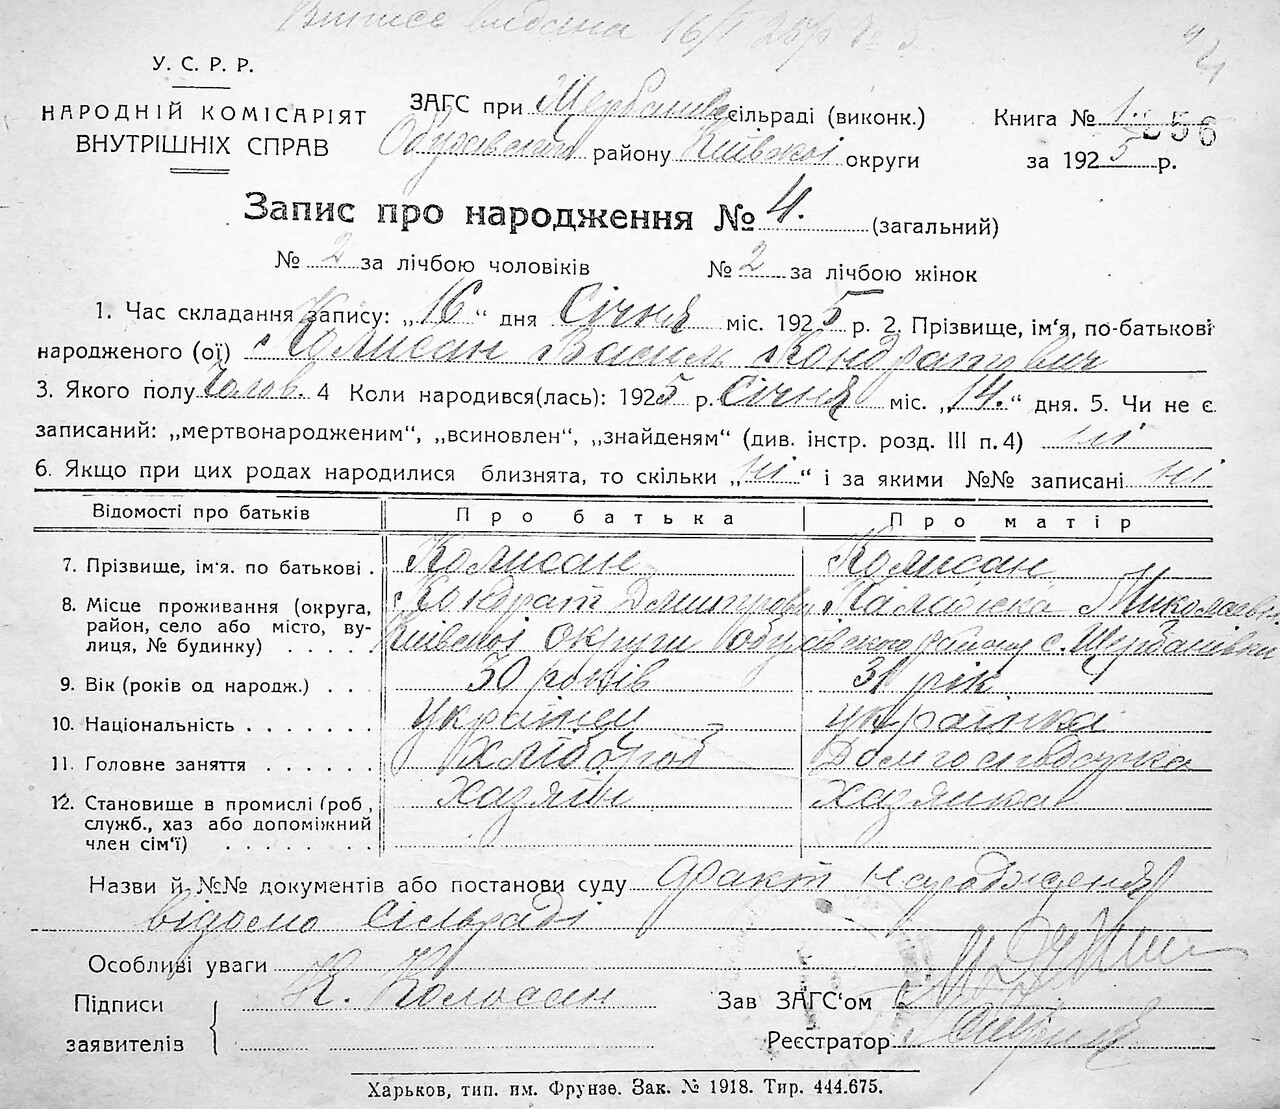 Виписс видана 16/I 25р № 5
У. С. Р. Р.
НАРОДНІЙ КОМІСАРІЯТ
ВНУТРІШНІХ СПРАВ
ЗАГС при Щербанів сільраді (виконк.)
Обухівськ району Київської округи
Книга № 1. 556
за 1925 р.
Запис про народження № 4. (загальний)
№ 2 за лічбою чоловіків № 2 за лічбою жінок
1. Час складання запису: „16“ дня Січня міс. 1925 р. 2. Прізвище, ім'я, по-батькові
народженого (ої) Колисан Василь Кондратович
3. Якого полу Чолов. 4 Коли народився(лась): 1925 р. Січня міс. „14.“ дня. 5. Чи не є
записаний: „мертвонародженим“, „всиновлен“, „знайденям“ (див. інстр. розд. III п. 4) ні
6. Якщо при цих родах народилися близнята, то скільки „ні“ і за якими №№ записані ні
Відомості про батьків Про батька Про матір
7. Прізвище, ім'я. по батькові . Колисан Колисан
Кондрат Дмитрови Миколаєвн
8. Місце проживання (округа,
район, село або місто, ву-
лиця, № будинку) . . . . Київської округи Обухівського району с. Щербанівки
9. Вік (років од народж.) . . . 30 років 31 рік
10. Національність . . . . . . . українец українка
11. Головне заняття . . . . . . хлібороб Домгосподарка
12. Становище в промислі (роб,
служб., хаз або допоміжний
член сім'ї) . . . . . . . хазяїн хазяйка
Назви й №№ документів або постанови суду факт народження
відомо сільраді
Особливі уваги
Підписи
заявителів
К. Колосан
Зав ЗАГС'ом
Реєстратор
Харьков, тип. им. Фрунзе. Зак. № 1918. Тир. 444.675.